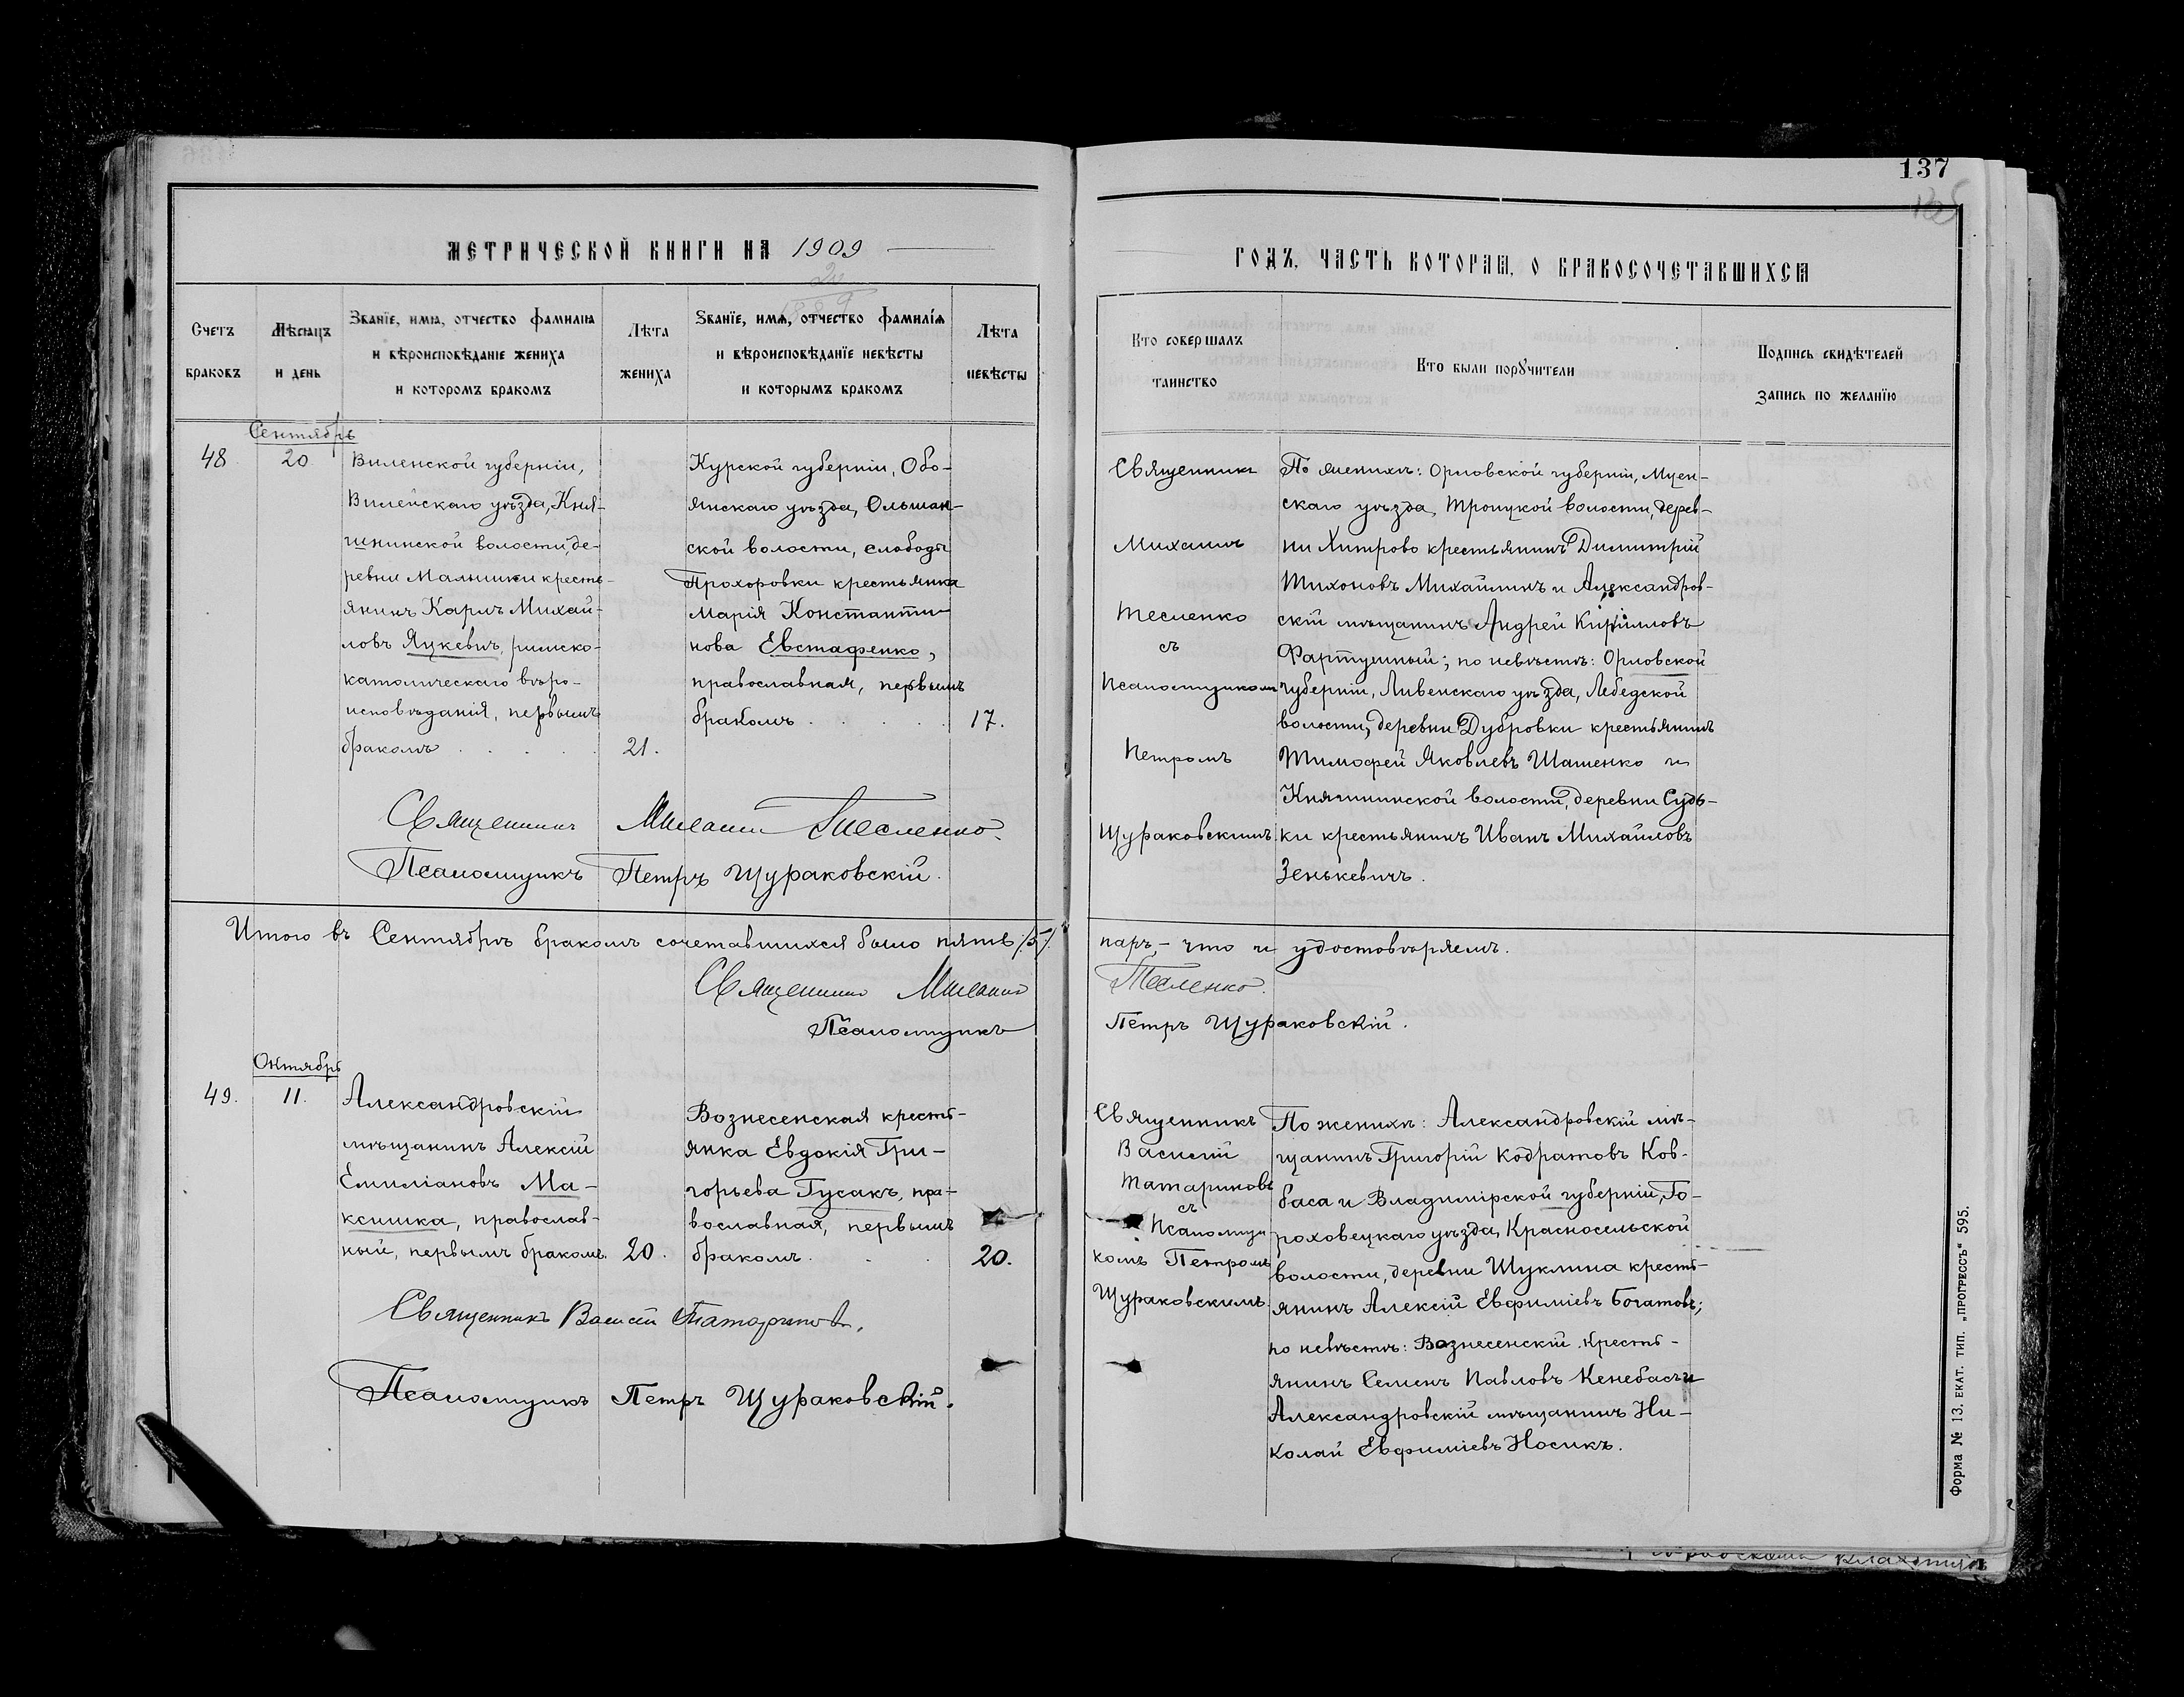 137
МЕТРИЧЕСКОЙ КНИГИ НА 1909
ГОДЪ, ЧАСТЬ ВТОРАЯ, О БРАКОСОЧЕТАВШИХСЯ
Счетъ браковъ
Мѣсяцъ и день
Званїе, имя, отчество фамилїя
и вѣроисповѣданїе жениха
и которомъ бракомъ
Лѣта жениха
Званїе, имя, отчество фамилїя
и вѣроисповѣданїе невѣсты
и которымъ бракомъ
Лѣта невѣсты
Кто совершалъ
таинство
Кто были порꙋчители
Подпись свидѣтелей
Запись по желанїю
Сентябрь
48
20
Виленской губерніи,
Вилейскаго уѣзда, Кня-
гининской волости, де-
ревни Мальшки кресть-
янинъ Карлъ Михай-
ловъ Яцкевичъ, римско-
католическаго вѣро-
исповѣданія, первымъ
бракомъ
21.
Курской губерніи, Обо-
янскаго уѣзда, Ольшан-
ской волости, слободы
Прохоровки крестьянка
Марія Константи-
нова Евстафенко,
православная, первымъ
бракомъ
17.
Священникъ
Михаилъ
Тесленко
съ
Псаломщикомъ
Петромъ
Щураковскимъ
По женихѣ: Орловской губерніи, Мцен-
скаго уѣзда, Троицкой волости, дерев-
ни Хитрово крестьянинъ Димитрій
Тихоновъ Михайлинъ и Александров-
скій мѣщанинъ Андрей Кирилловъ
Фартушный; по невѣстѣ: Орловской
губерніи, Ливенскаго уѣзда, Лебедской
волости, деревни Дубровки крестьянинъ
Тимофей Яковлевъ Шатенко и
Княгининской волости, деревни Судь-
ки крестьянинъ Иванъ Михайловъ
Зенькевичъ.
Священникъ Михаилъ Тесленко.
Псаломщикъ Петръ Щураковскій.
Итого въ Сентябрѣ бракомъ сочетавшихся было пять /5/ паръ, – что и удостовѣряемъ.
Священникъ Михаилъ Тесленко.
Псаломщикъ Петръ Щураковскій.
Октябрь
49.
11.
Александровскій
мѣщанинъ Алексій
Емиліановъ Ма-
ксишка, православ-
ный, первымъ бракомъ.
20.
Вознесенская кресть-
янка Евдокія Гри-
горьева Гусакъ, пра-
вославная, первымъ
бракомъ
20.
Священникъ
Василій
Татариновъ
съ
Псаломщи
комъ Петромъ
Щураковскимъ.
По женихѣ: Александровскій мѣ-
щанинъ Григорій Кодратовъ Ков-
баса и Владимірской губерніи, Го-
роховецкаго уѣзда, Красносельской
волости, деревни Шуклина кресть-
янинъ Алексій Евфиміевъ Богатовъ;
по невѣстѣ: Вознесенскій кресть-
янинъ Семенъ Павловъ Кенебасъ и
Александровскій мѣщанинъ Ни-
колай Евфиміевъ Носикъ.
Священникъ Василій Татариновъ.
Псаломщикъ Петръ Щураковскій.
Форма № 13. ЕКАТ. ТИП. „ПРОГРЕССЪ“ 595.